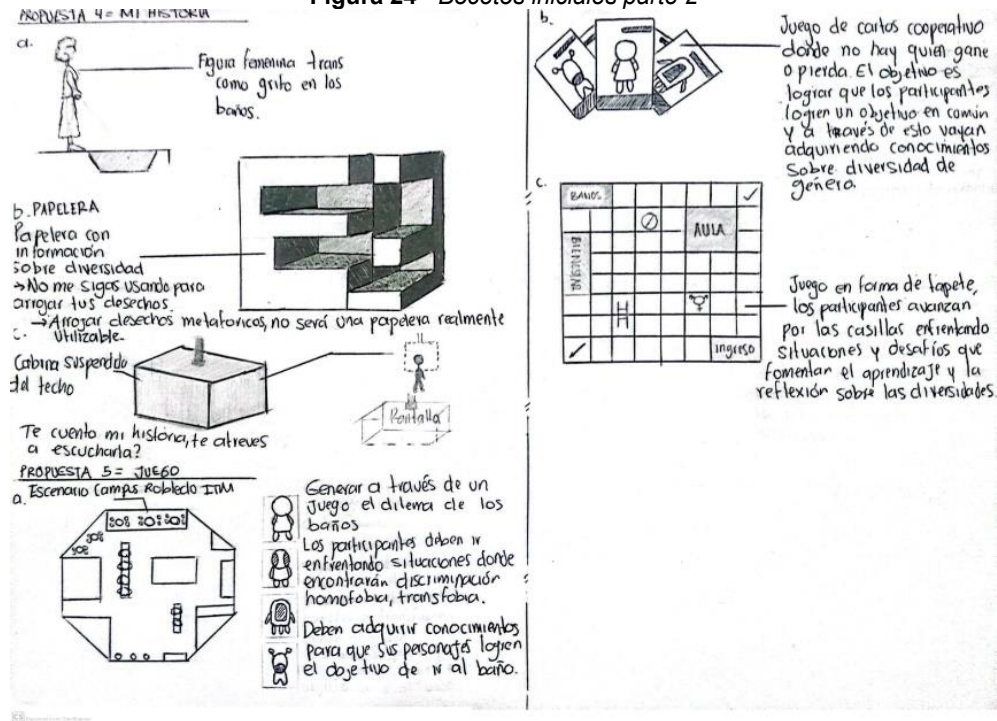 Figura 24 - Bocetos iniciales parte 2
PROPUESTA 4= MI HISTORIA
a.
Figura femenina trans
como grito en los
baños.
b. PAPELERA
Papelera con
información
sobre diversidad
→No me sigas usando para
arrojar tus desechos.
→Arrojar desechos metaforicos, no será una papelera realmente
utilizable.
c.
Cabina suspendida
del techo
Pantalla
Te cuento mi historia, te atreves
a escucharla?
PROPUESTA 5= JUEGO
a. Escenario Campus Robledo ITM
Generar a través de un
Juego el dilema de los
baños
Los participantes deben ir
enfrentando situaciones donde
encontrarán discriminación
homofobia, transfobia.
Deben adquirir conocimientos
para que sus personajes logren
el objetivo de ir al baño.
b.
Juego de cartas cooperativo
donde no hay quien gane
o pierda. El objetivo es
lograr que los participantes
logren un objetivo en común
y a través de esto vayan
adquiriendo conocimientos
sobre diversidad de
género.
c.
BAÑOS
AULA
BIENESTAR
ingreso
Juego en forma de tapete,
los participantes avanzan
por las casillas enfrentando
situaciones y desafíos que
fomentan el aprendizaje y la
reflexión sobre las diversidades.
CS